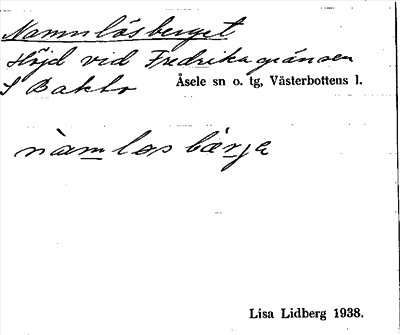 Namnlösberget
Höjd vid Fredrikagränsen
S Baklo Åsele sn o. tg, Västerbottens l.
nàmnlas bärja
Lisa Lidberg 1938.